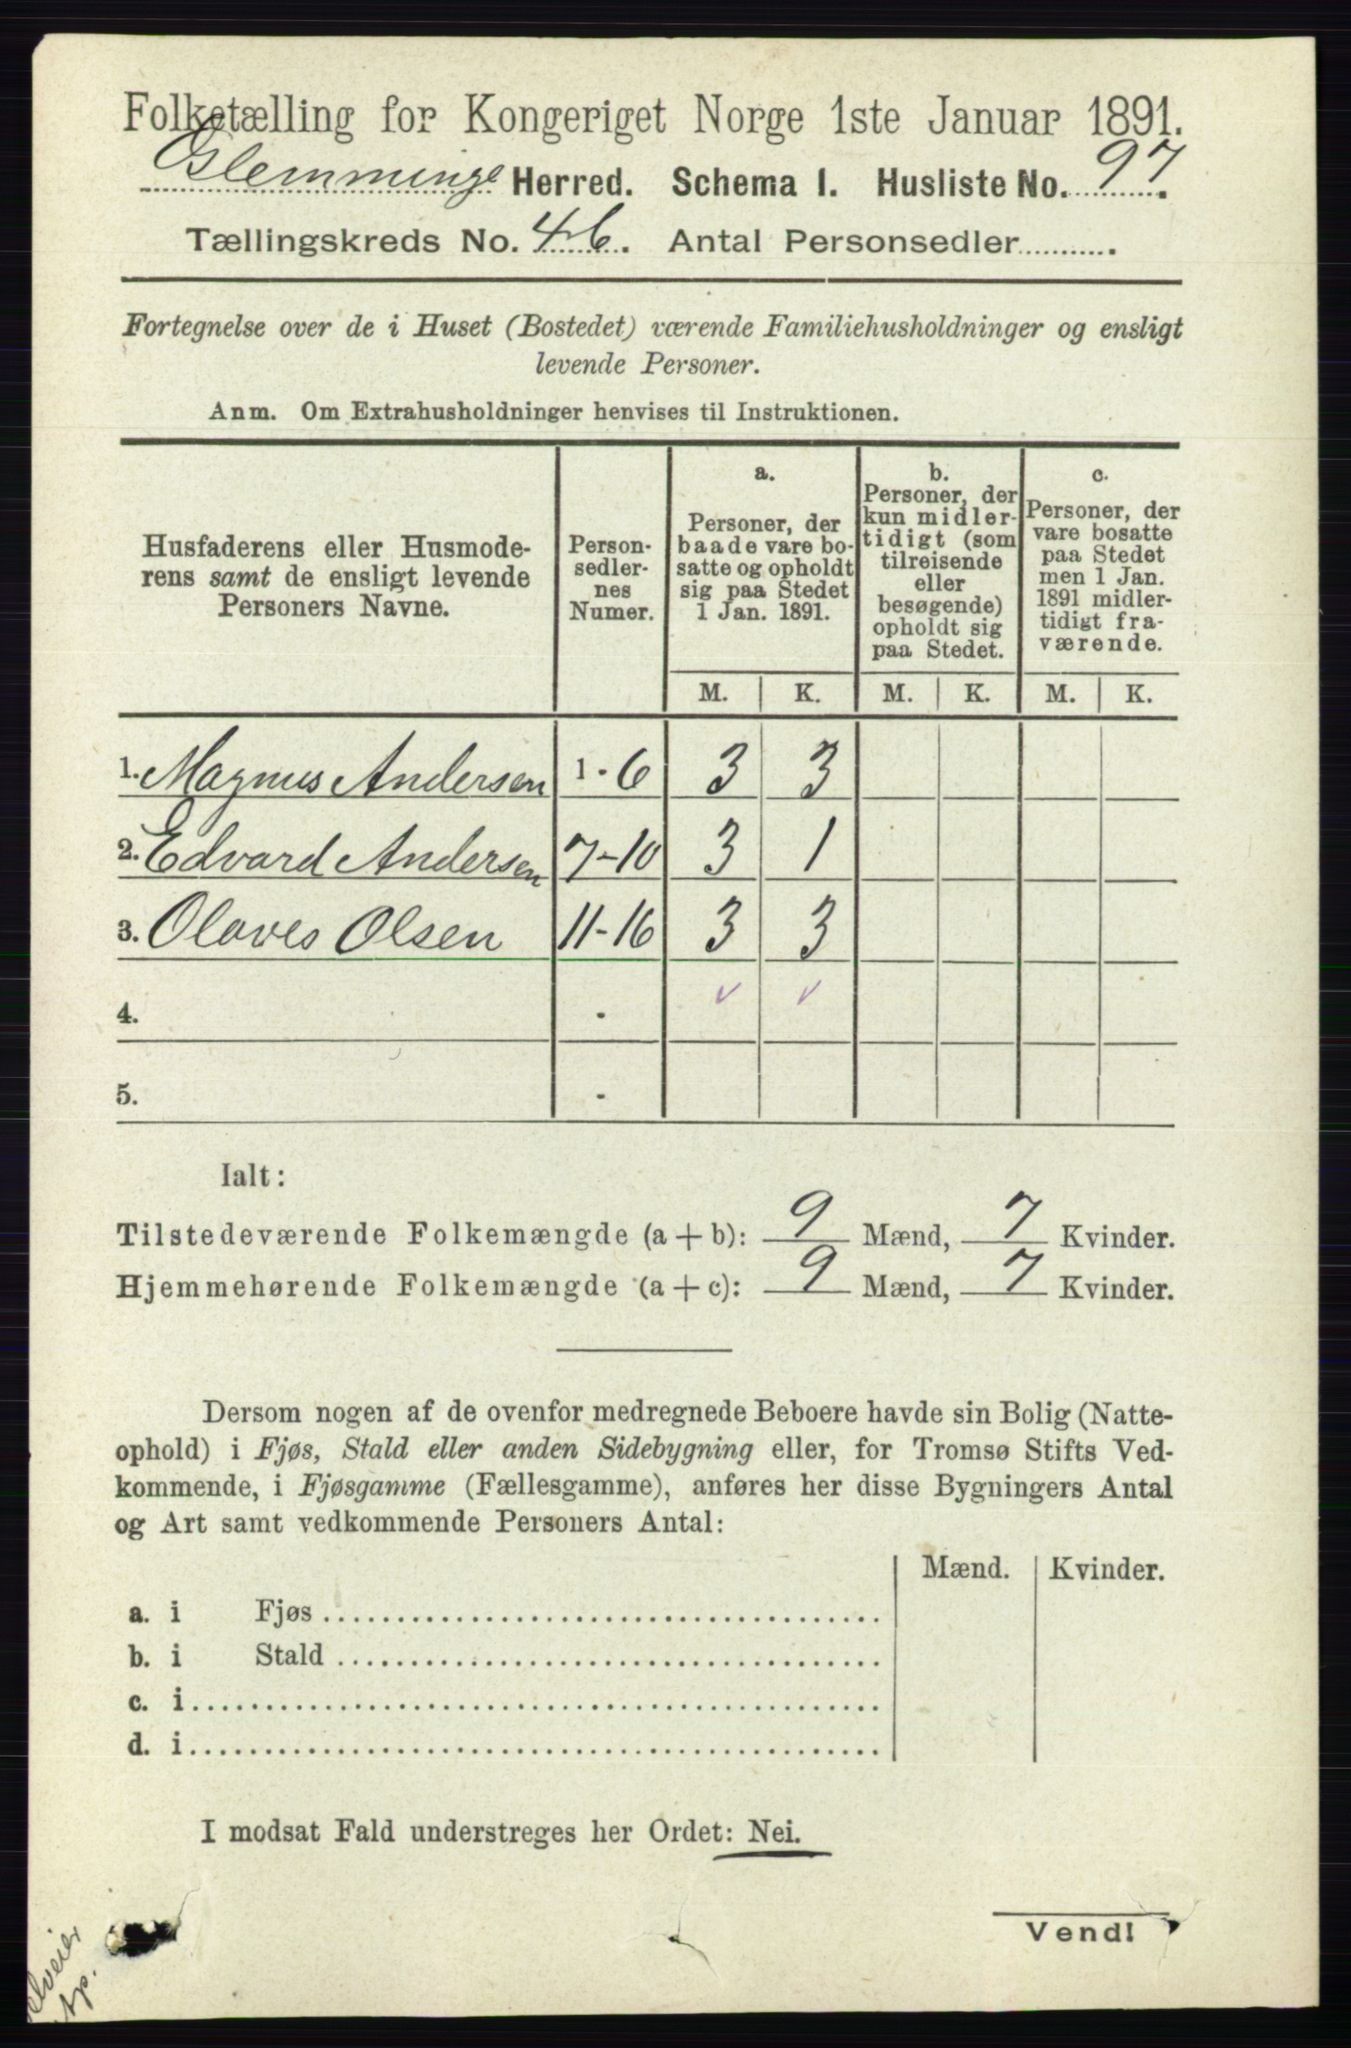 Folketælling for Kongeriget Norge 1ste Januar 1891.
Glemminge Herred. Schema I. Husliste No. 97.
Tællingskreds No. 46. Antal Personsedler ..........
Fortegnelse over de i Huset (Bostedet) værende Familiehusholdninger og ensligt
levende Personer.
Anm. Om Extrahusholdninger henvises til Instruktionen.
Husfaderens eller Husmode-
rens samt de ensligt levende
Personers Navne.
Person-
sedler-
nes
Numer.
a.
Personer, der
baade vare bo-
satte og opholdt
sig paa Stedet
1 Jan. 1891.
b.
Personer, der
kun midler-
tidigt (som
tilreisende
eller
besøgende)
opholdt sig
paa Stedet.
c.
Personer, der
vare bosatte
paa Stedet
men 1 Jan.
1891 midler-
tidigt fra-
værende.
M. K. M. K. M. K.
1. Magnus Andersen 1-6 3 3
2. Edvard Andersen 7-10 3 1
3. Olaves Olsen 11-16 3 3
4. - v v
5. -
Ialt:
Tilstedeværende Folkemængde (a + b): 9 Mænd, 7 Kvinder.
Hjemmehørende Folkemængde (a + c): 9 Mænd, 7 Kvinder.
Dersom nogen af de ovenfor medregnede Beboere havde sin Bolig (Natte-
ophold) i Fjøs, Stald eller anden Sidebygning eller, for Tromsø Stifts Ved-
kommende, i Fjøsgamme (Fællesgamme), anføres her disse Bygningers Antal
og Art samt vedkommende Personers Antal:
Mænd. Kvinder.
a. i Fjøs
b. i Stald
c. i
d. i
I modsat Fald understreges her Ordet: Nei.
Vend!